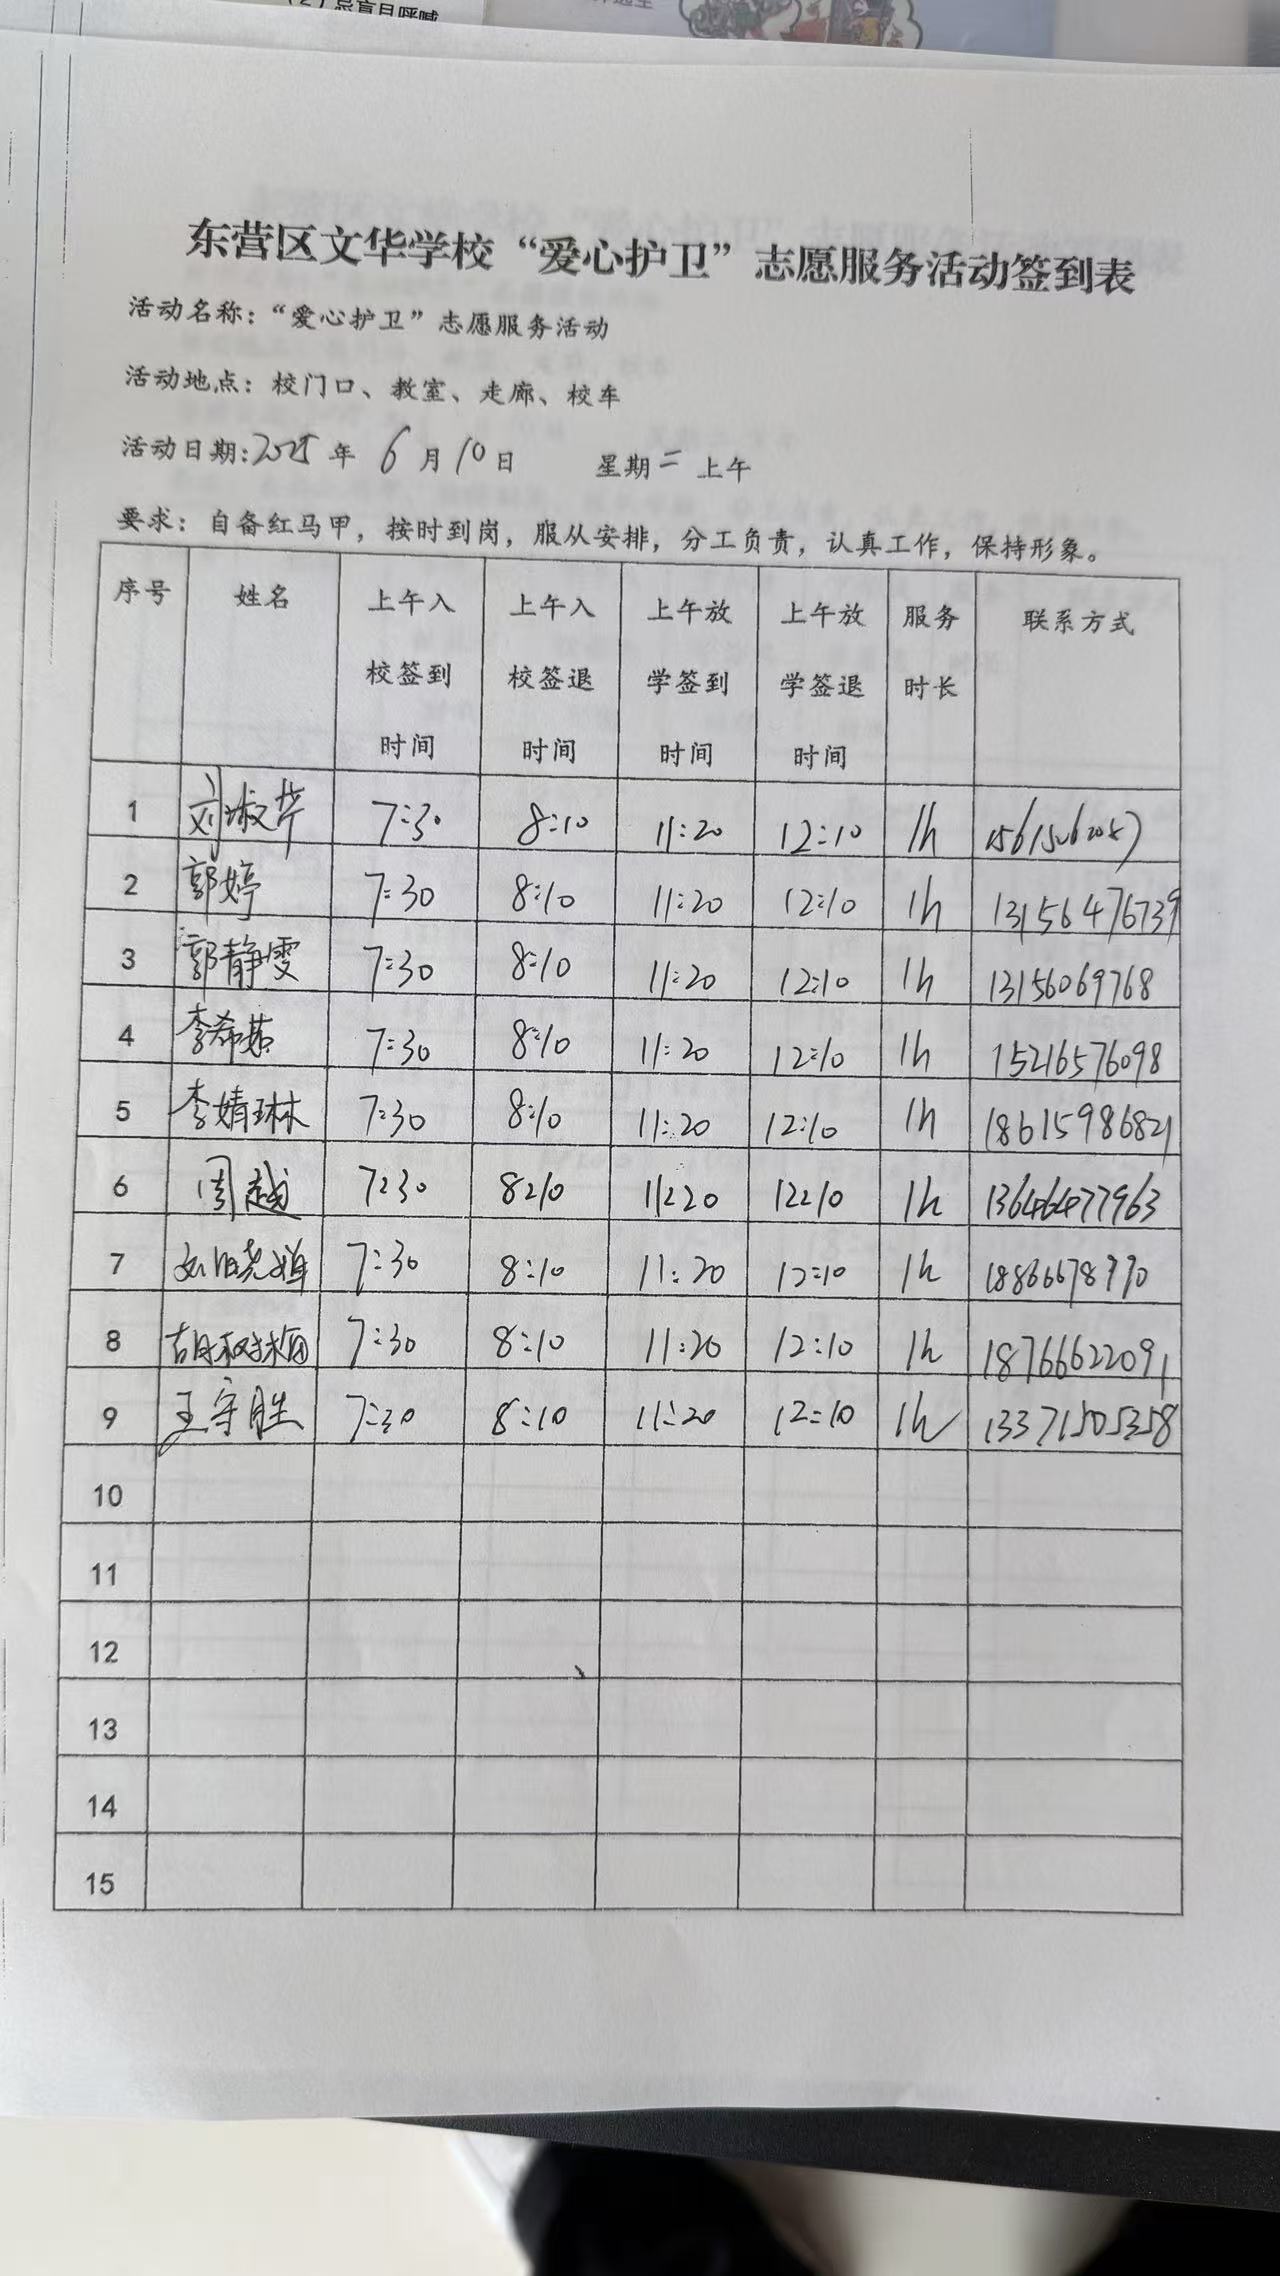 (2)忌盲目呼喊
东营区文华学校“爱心护卫”志愿服务活动签到表
活动名称：“爱心护卫”志愿服务活动
活动地点：校门口、教室、走廊、校车
活动日期:2025年 6月10日 星期二 上午
要求：自备红马甲，按时到岗，服从安排，分工负责，认真工作，保持形象。
序号 姓名 上午入校签到时间 上午入校签退时间 上午放学签到时间 上午放学签退时间 服务时长 联系方式
1 刘淑芹 7:30 8:10 11:20 12:10 1h
2 郭婷 7:30 8:10 11:20 12:10 1h 13156476739
3 郭静雯 7:30 8:10 11:20 12:10 1h 13156069768
4 李希茹 7:30 8:10 11:20 12:10 1h 15216576098
5 李婧琳 7:30 8:10 11:20 12:10 1h 18615986821
6 周越 7:30 8:10 11:20 12:10 1h 13646477963
7 7:30 8:10 11:20 12:10 1h
8 7:30 8:10 11:20 12:10 1h 18766622091
9 王守胜 7:30 8:10 11:20 12:10 1h 13371505358
10
11
12
13
14
15